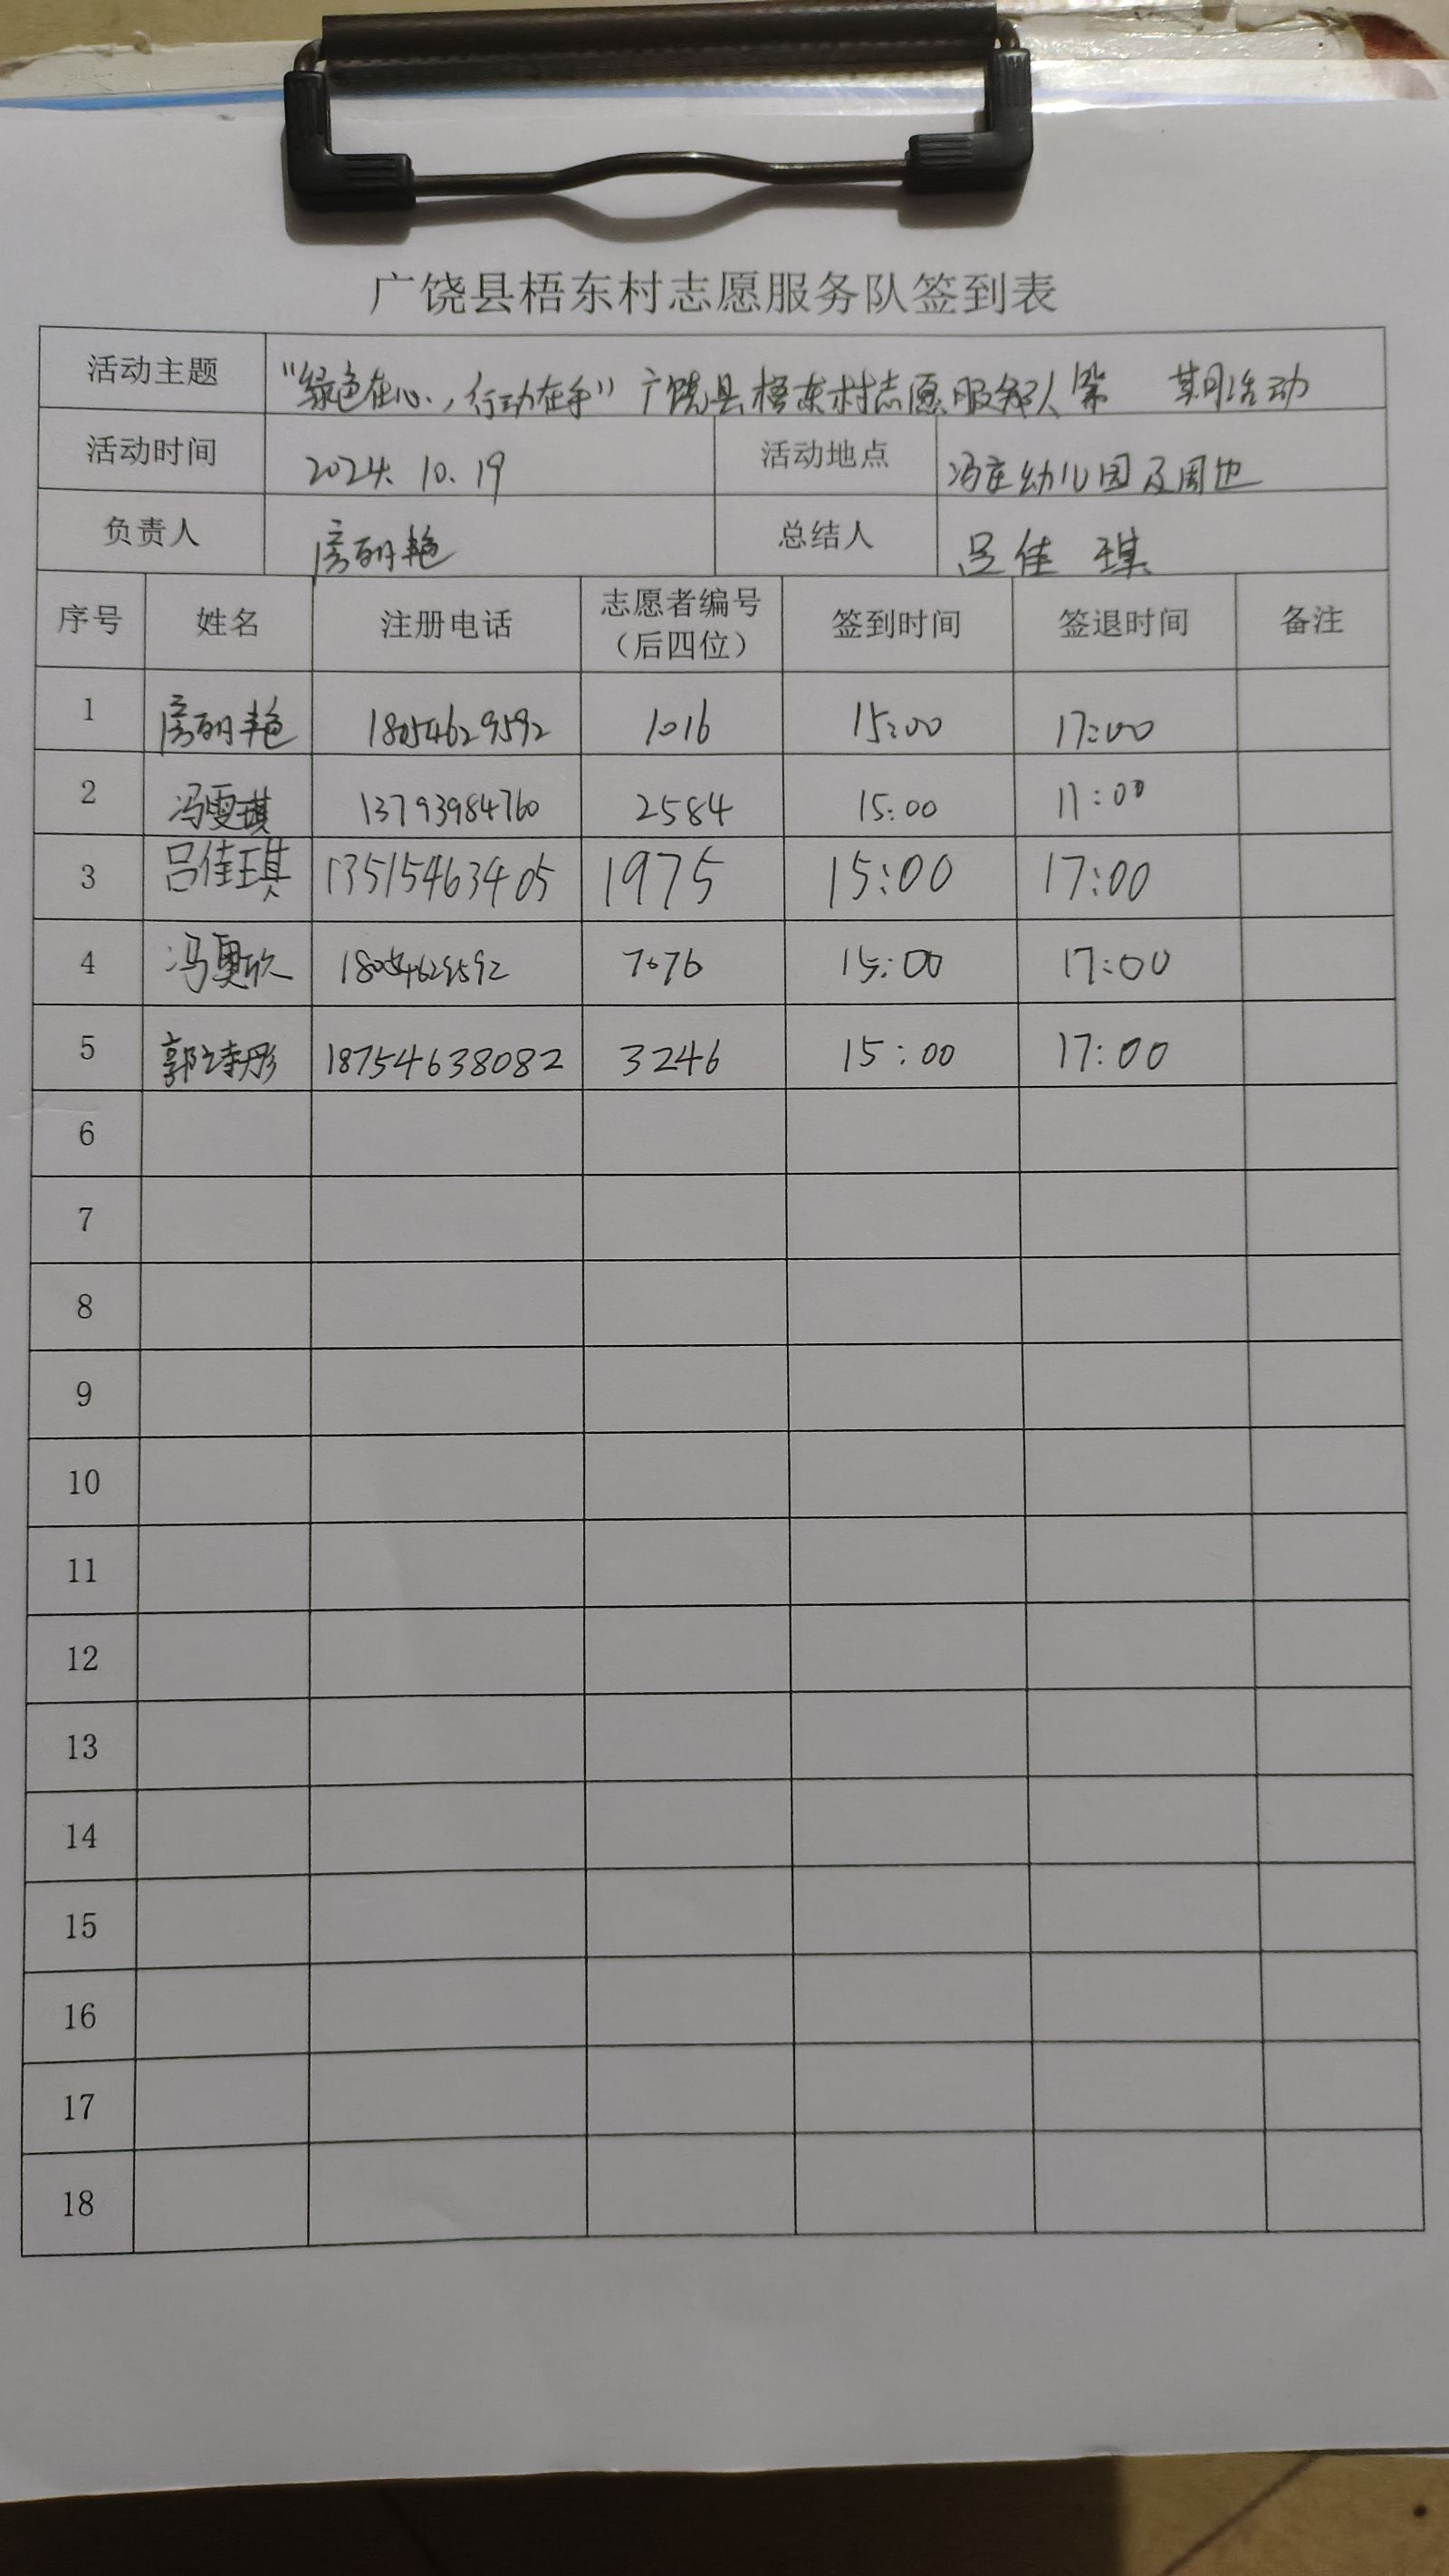 广饶县梧东村志愿服务队签到表
活动主题 "绿色在心,行动在手"广饶县梧东村志愿服务队第 期活动
活动时间 2024.10.19 活动地点 冯庄幼儿园及周边
负责人 房明艳 总结人 吕佳琪
序号 姓名 注册电话 志愿者编号(后四位) 签到时间 签退时间 备注
1 房明艳 18054629592 1016 15:00 17:00
2 冯雯琪 13793984760 2584 15:00 17:00
3 吕佳琪 13515463405 1975 15:00 17:00
4 冯奥欣 18054629592 7076 15:00 17:00
5 郭诗彤 18754638082 3246 15:00 17:00
6
7
8
9
10
11
12
13
14
15
16
17
18